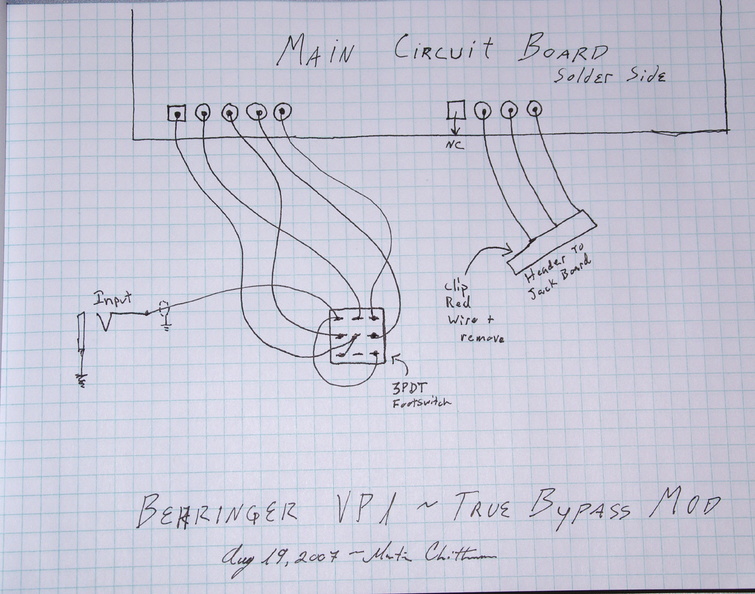 MAIN CIRCUIT BOARD
Solder Side
NC
Input
Clip
Red
Wire +
remove
Header To
Jack Board
3PDT
Footswitch
BEHRINGER VP1 ~ TRUE BYPASS MOD
Aug 19, 2007 ~ Martin